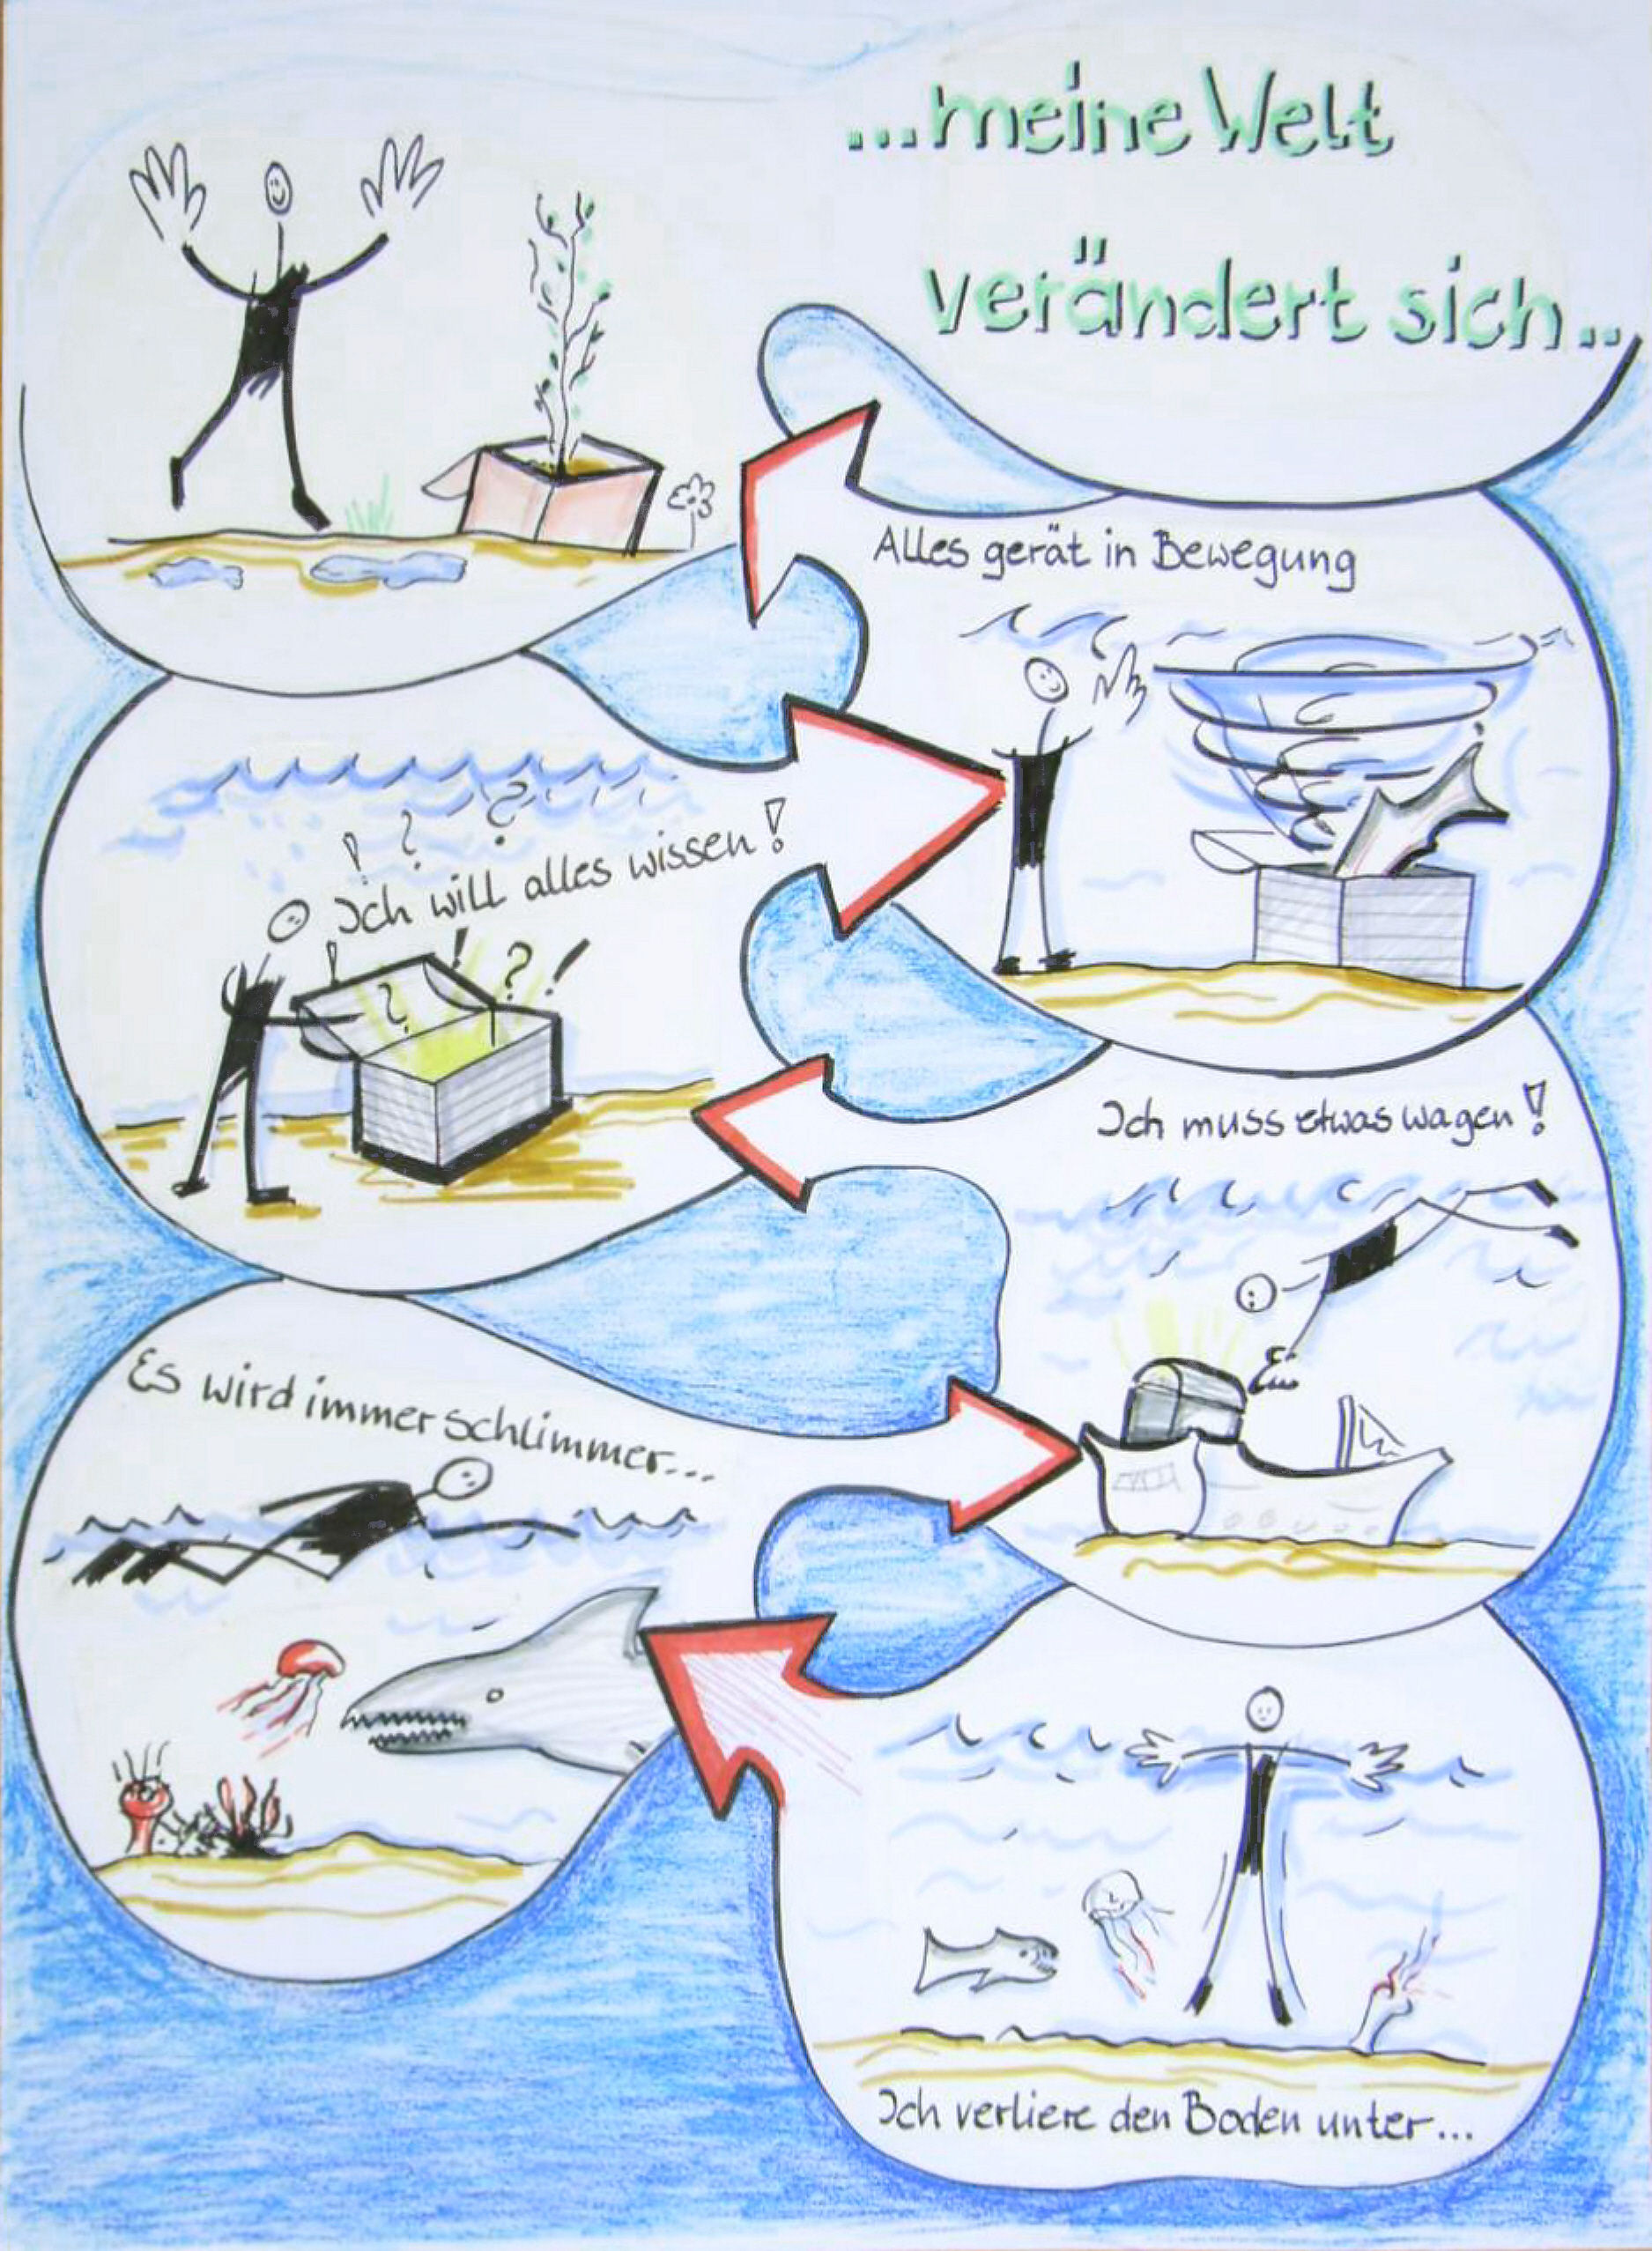 ...meine Welt
verändert sich..
Alles gerät in Bewegung
! ? ?
Ich will alles wissen!
! ! ? !
?
Ich muss etwas wagen!
Es wird immer schlimmer...
Ich verliere den Boden unter...